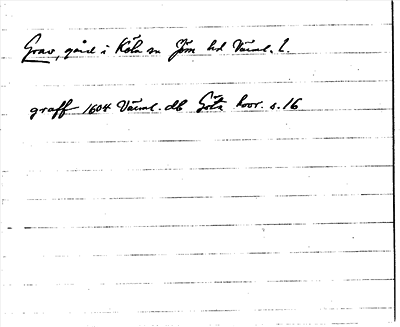 Grav, gård i Köla sn Jösse hd Värml. l.
graff 1604 Värml. db Göta hovr. s. 16